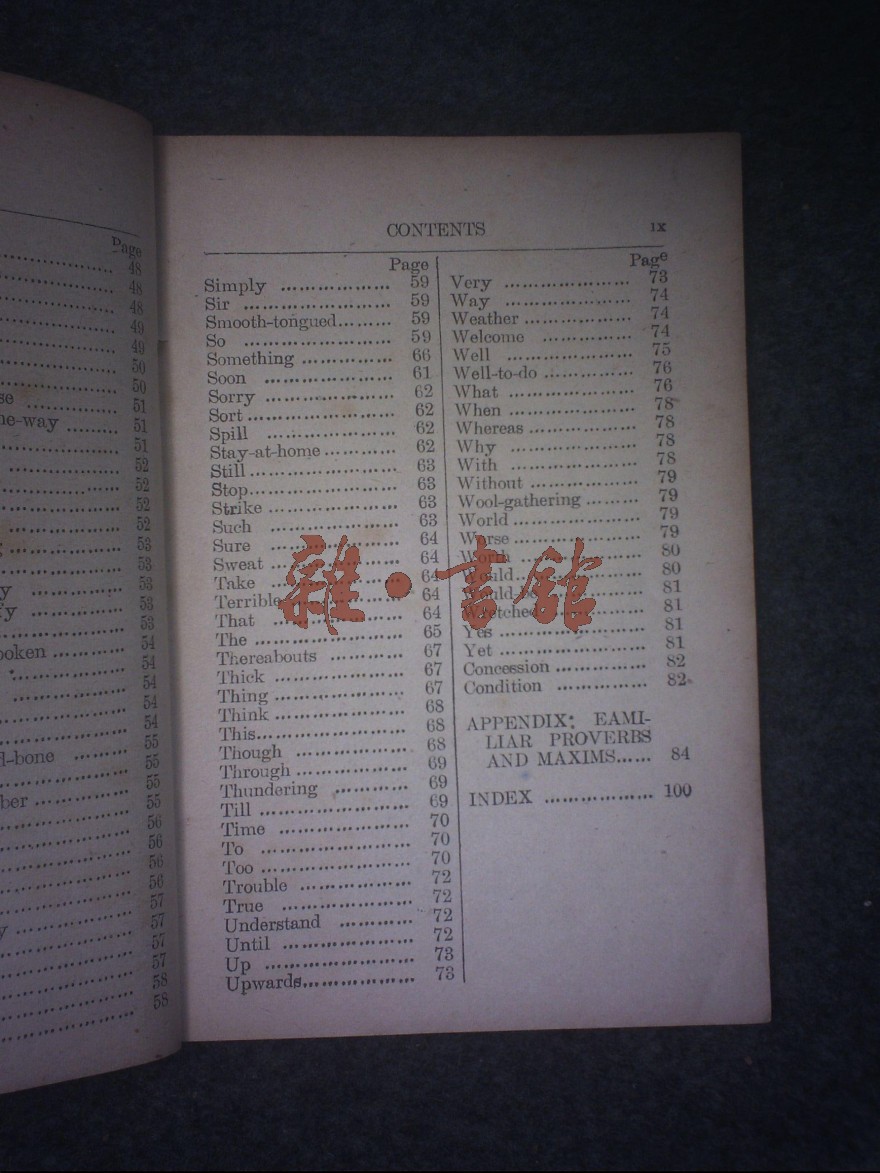 Page
48
48
48
49
49
50
50
51
51
51
52
52
52
52
53
53
53
53
53
54
54
54
54
54
55
55
55
55
56
56
56
56
57
57
57
57
58
58
CONTENTS ix
Page
Simply .................. 59
Sir ........................ 59
Smooth-tongued......... 59
So ........................ 59
Something ............... 66
Soon ..................... 61
Sorry ..................... 62
Sort ........................ 62
Spill ..................... 62
Stay-at-home ............ 62
Still ........................ 63
Stop........................ 63
Strike ..................... 63
Such ..................... 63
Sure ..................... 64
Sweat ..................... 64
Take ..................... 64
Terrible .................. 64
That ..................... 64
The ........................ 65
Thereabouts ............ 67
Thick ..................... 67
Thing ..................... 67
Think ..................... 68
This........................ 68
Though .................. 68
Through .................. 69
Thundering ............ 69
Till ........................ 69
Time ..................... 70
To ........................ 70
Too ........................ 70
Trouble .................. 72
True ..................... 72
Understand ............ 72
Until ..................... 72
Up ........................ 73
Upwards.................. 73
Page
Very ..................... 73
Way ..................... 74
Weather .................. 74
Welcome ............... 74
Well ..................... 75
Well-to-do ............... 76
What ..................... 76
When ..................... 78
Whereas .................. 78
Why ..................... 78
With ..................... 78
Without .................. 79
Wool-gathering ......... 79
World ..................... 79
Worse ..................... 79
Worth ..................... 80
Would..................... 80
Would-be ............... 81
Wretched ............... 81
Yes ........................ 81
Yet ........................ 81
Concession ............... 82
Condition ............... 82
APPENDIX: EAMI-
LIAR PROVERBS
AND MAXIMS...... 84
INDEX .................. 100
雜·書館